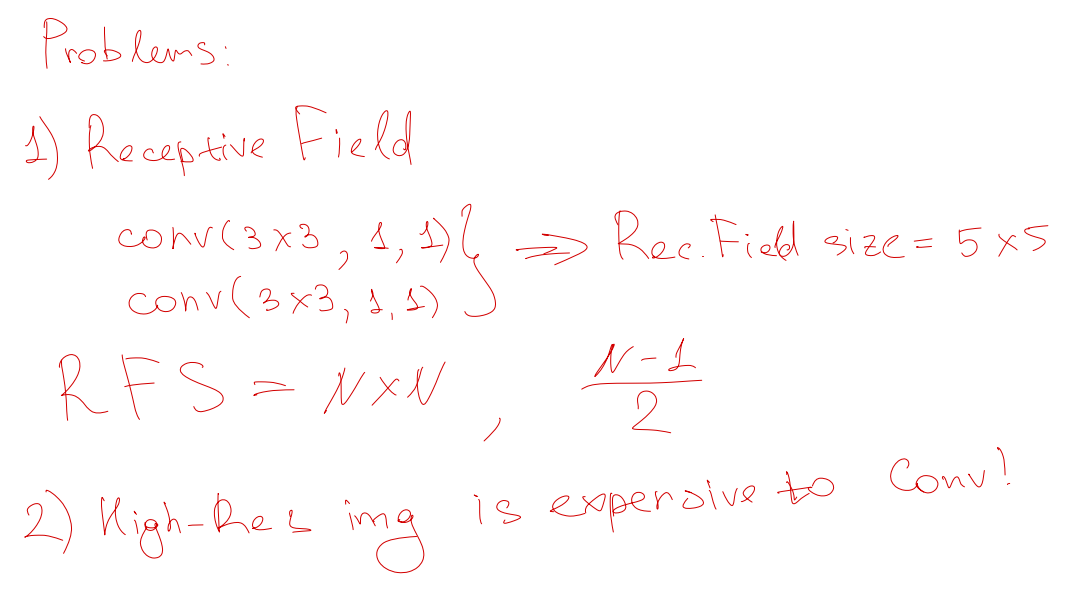 Problems:
1) Receptive Field
conv(3x3, 1, 1) } => Rec. Field size = 5x5
conv(3x3, 1, 1)
RFS = NxN, (N-1)/2
2) High-Res img is expensive to Conv!